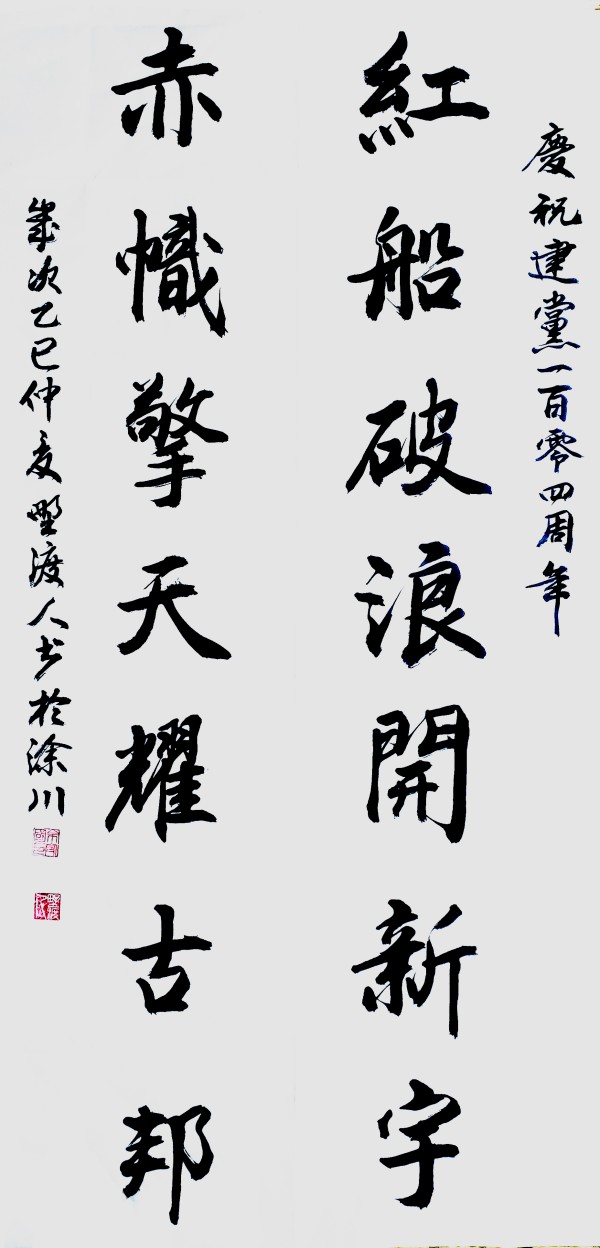 慶祝建黨一百零四周年
紅船破浪開新宇
赤幟擎天耀古邦
歲次乙巳仲夏野渡人书於涂川